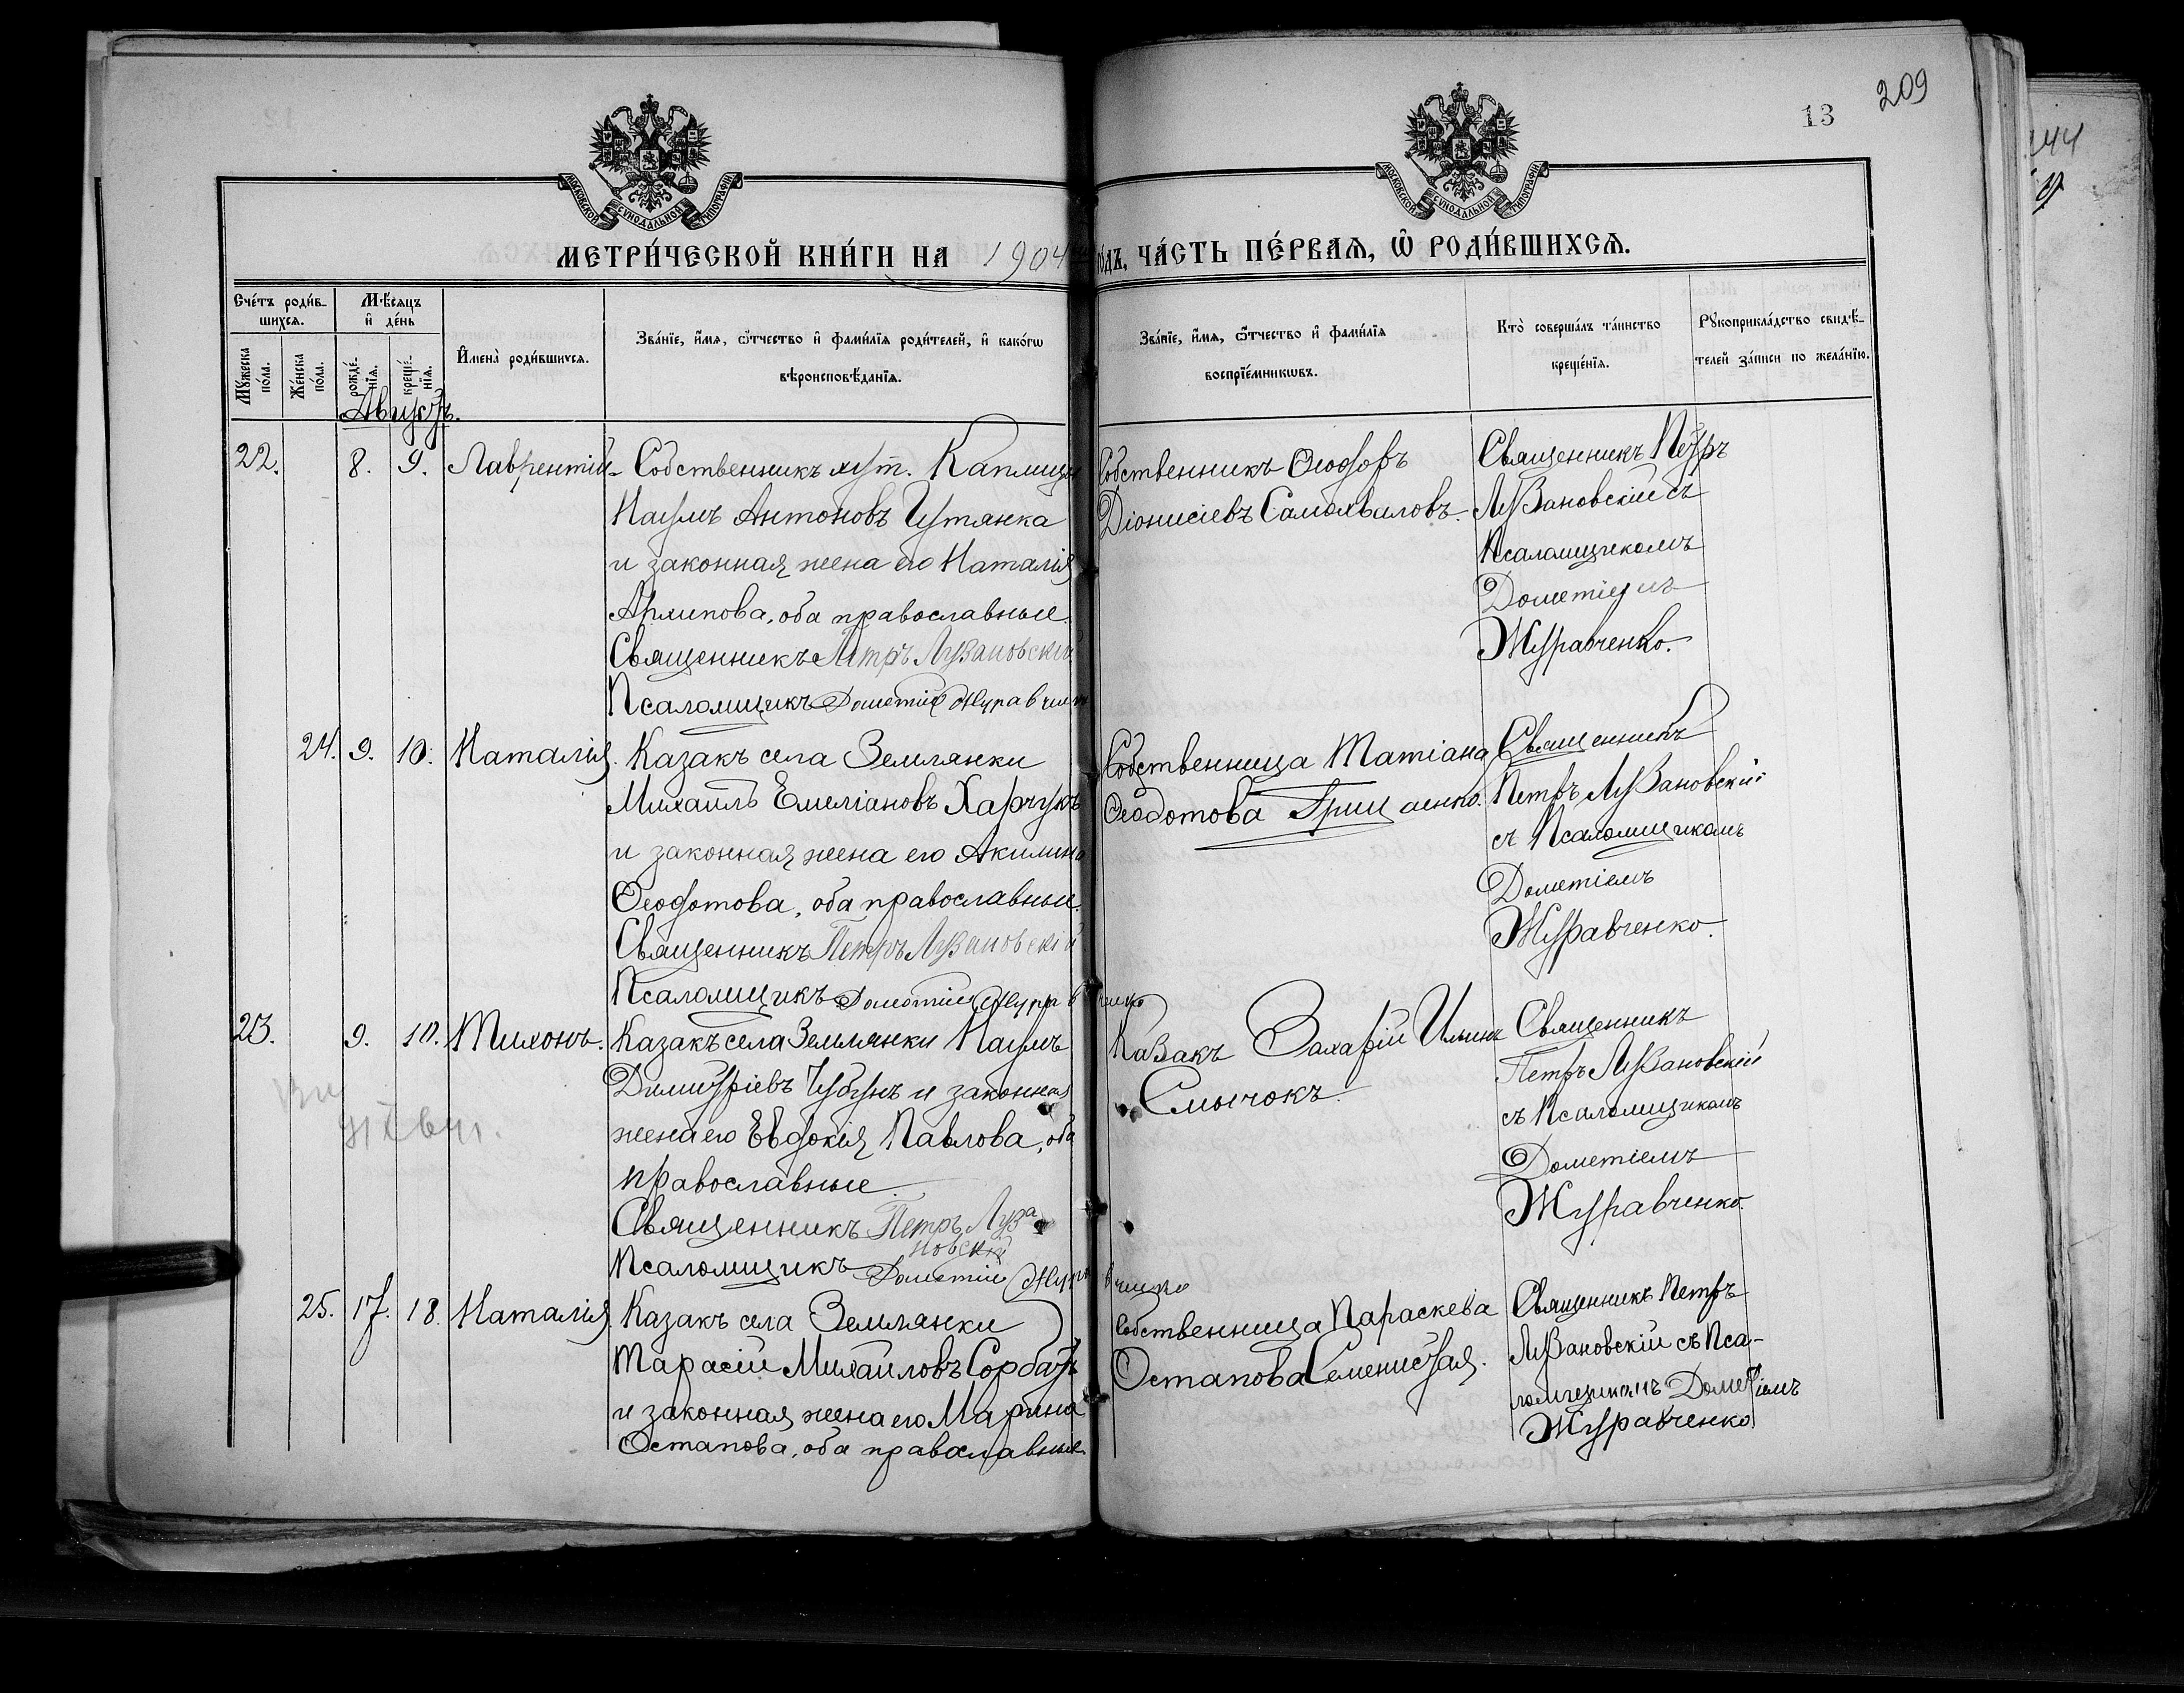 209
13
МОСКОВСКОЙ СѴНОДАЛЬНОЙ ТИПОГРАФІИ
МОСКОВСКОЙ СѴНОДАЛЬНОЙ ТИПОГРАФІИ
МЕТРИ́ЧЕСКОЙ КНИ́ГИ НА 1904 го́дъ, ЧА́СТЬ ПЕ́РВАѦ, Ѽ РОДИ́ВШИХСѦ.
Сче́тъ роди́в-
шихсѧ.
Мѣ́сѧцъ
и҆ де́нь
Мꙋ́жеска по́ла.
Же́нска по́ла.
рожде́-
нїѧ.
креще́-
нїѧ.
И҆мена̀ роди́вшихсѧ.
Зва́нїе, и҆́мѧ, ѻ҆́тчество и҆ фами́лїѧ роди́телей, и҆ како́гѡ
вѣроисповѣ́данїѧ.
Зва́нїе, и҆́мѧ, ѻ҆́тчество и҆ фами́лїѧ
воспрїе́мникѡвъ.
Кто̀ соверша́лъ та́инство
креще́нїѧ.
Рꙋкоприкла́дство свидѣ́-
телей за́писи по жела́нїю.
Августъ.
22. 8. 9. Лаврентій
Собственникъ хут. Каплицы
Наумъ Антоновъ Чутянка
и законная жена его Наталія
Архипова, оба православные.
Священникъ Петръ Лузановскій
Псаломщикъ Дометій Журавченко
Собственникъ Ѳеодоръ
Діонисіевъ Самохваловъ.
Священникъ Петръ
Лузановскій съ
Псаломщикомъ
Дометіемъ
Журавченко.
24. 9. 10. Наталія.
Казакъ села Землянки
Михаилъ Емеліановъ Харчукъ
и законная жена его Акилина
Ѳеодотова, оба православные.
Священникъ Петръ Лузановскій
Псаломщикъ Дометій Журавченко
Собственница Татіана
Ѳеодотова Грищаенко.
Священникъ
Петръ Лузановскій
съ Псаломщикомъ
Дометіемъ
Журавченко.
23. 9. 10. Тихонъ.
Казакъ села Землянки Наумъ
Димитріевъ Чубунъ и законная
жена его Евдокія Павлова, оба
православные.
Священникъ Петръ Луза
новскій
Псаломщикъ Дометій Журавченко
Казакъ Захарій Ильинъ
Смычокъ.
Священникъ
Петръ Лузановскій
съ Псаломщикомъ
Дометіемъ
Журавченко.
25. 17. 18. Наталія.
Казакъ села Землянки
Тарасій Михаиловъ Сорбатъ
и законная жена его Марина
Остапова, оба православные
Собственница Параскева
Остапова Семенистая.
Священникъ Петръ
Лузановскій съ Пса-
ломщикомъ Дометіемъ
Журавченко